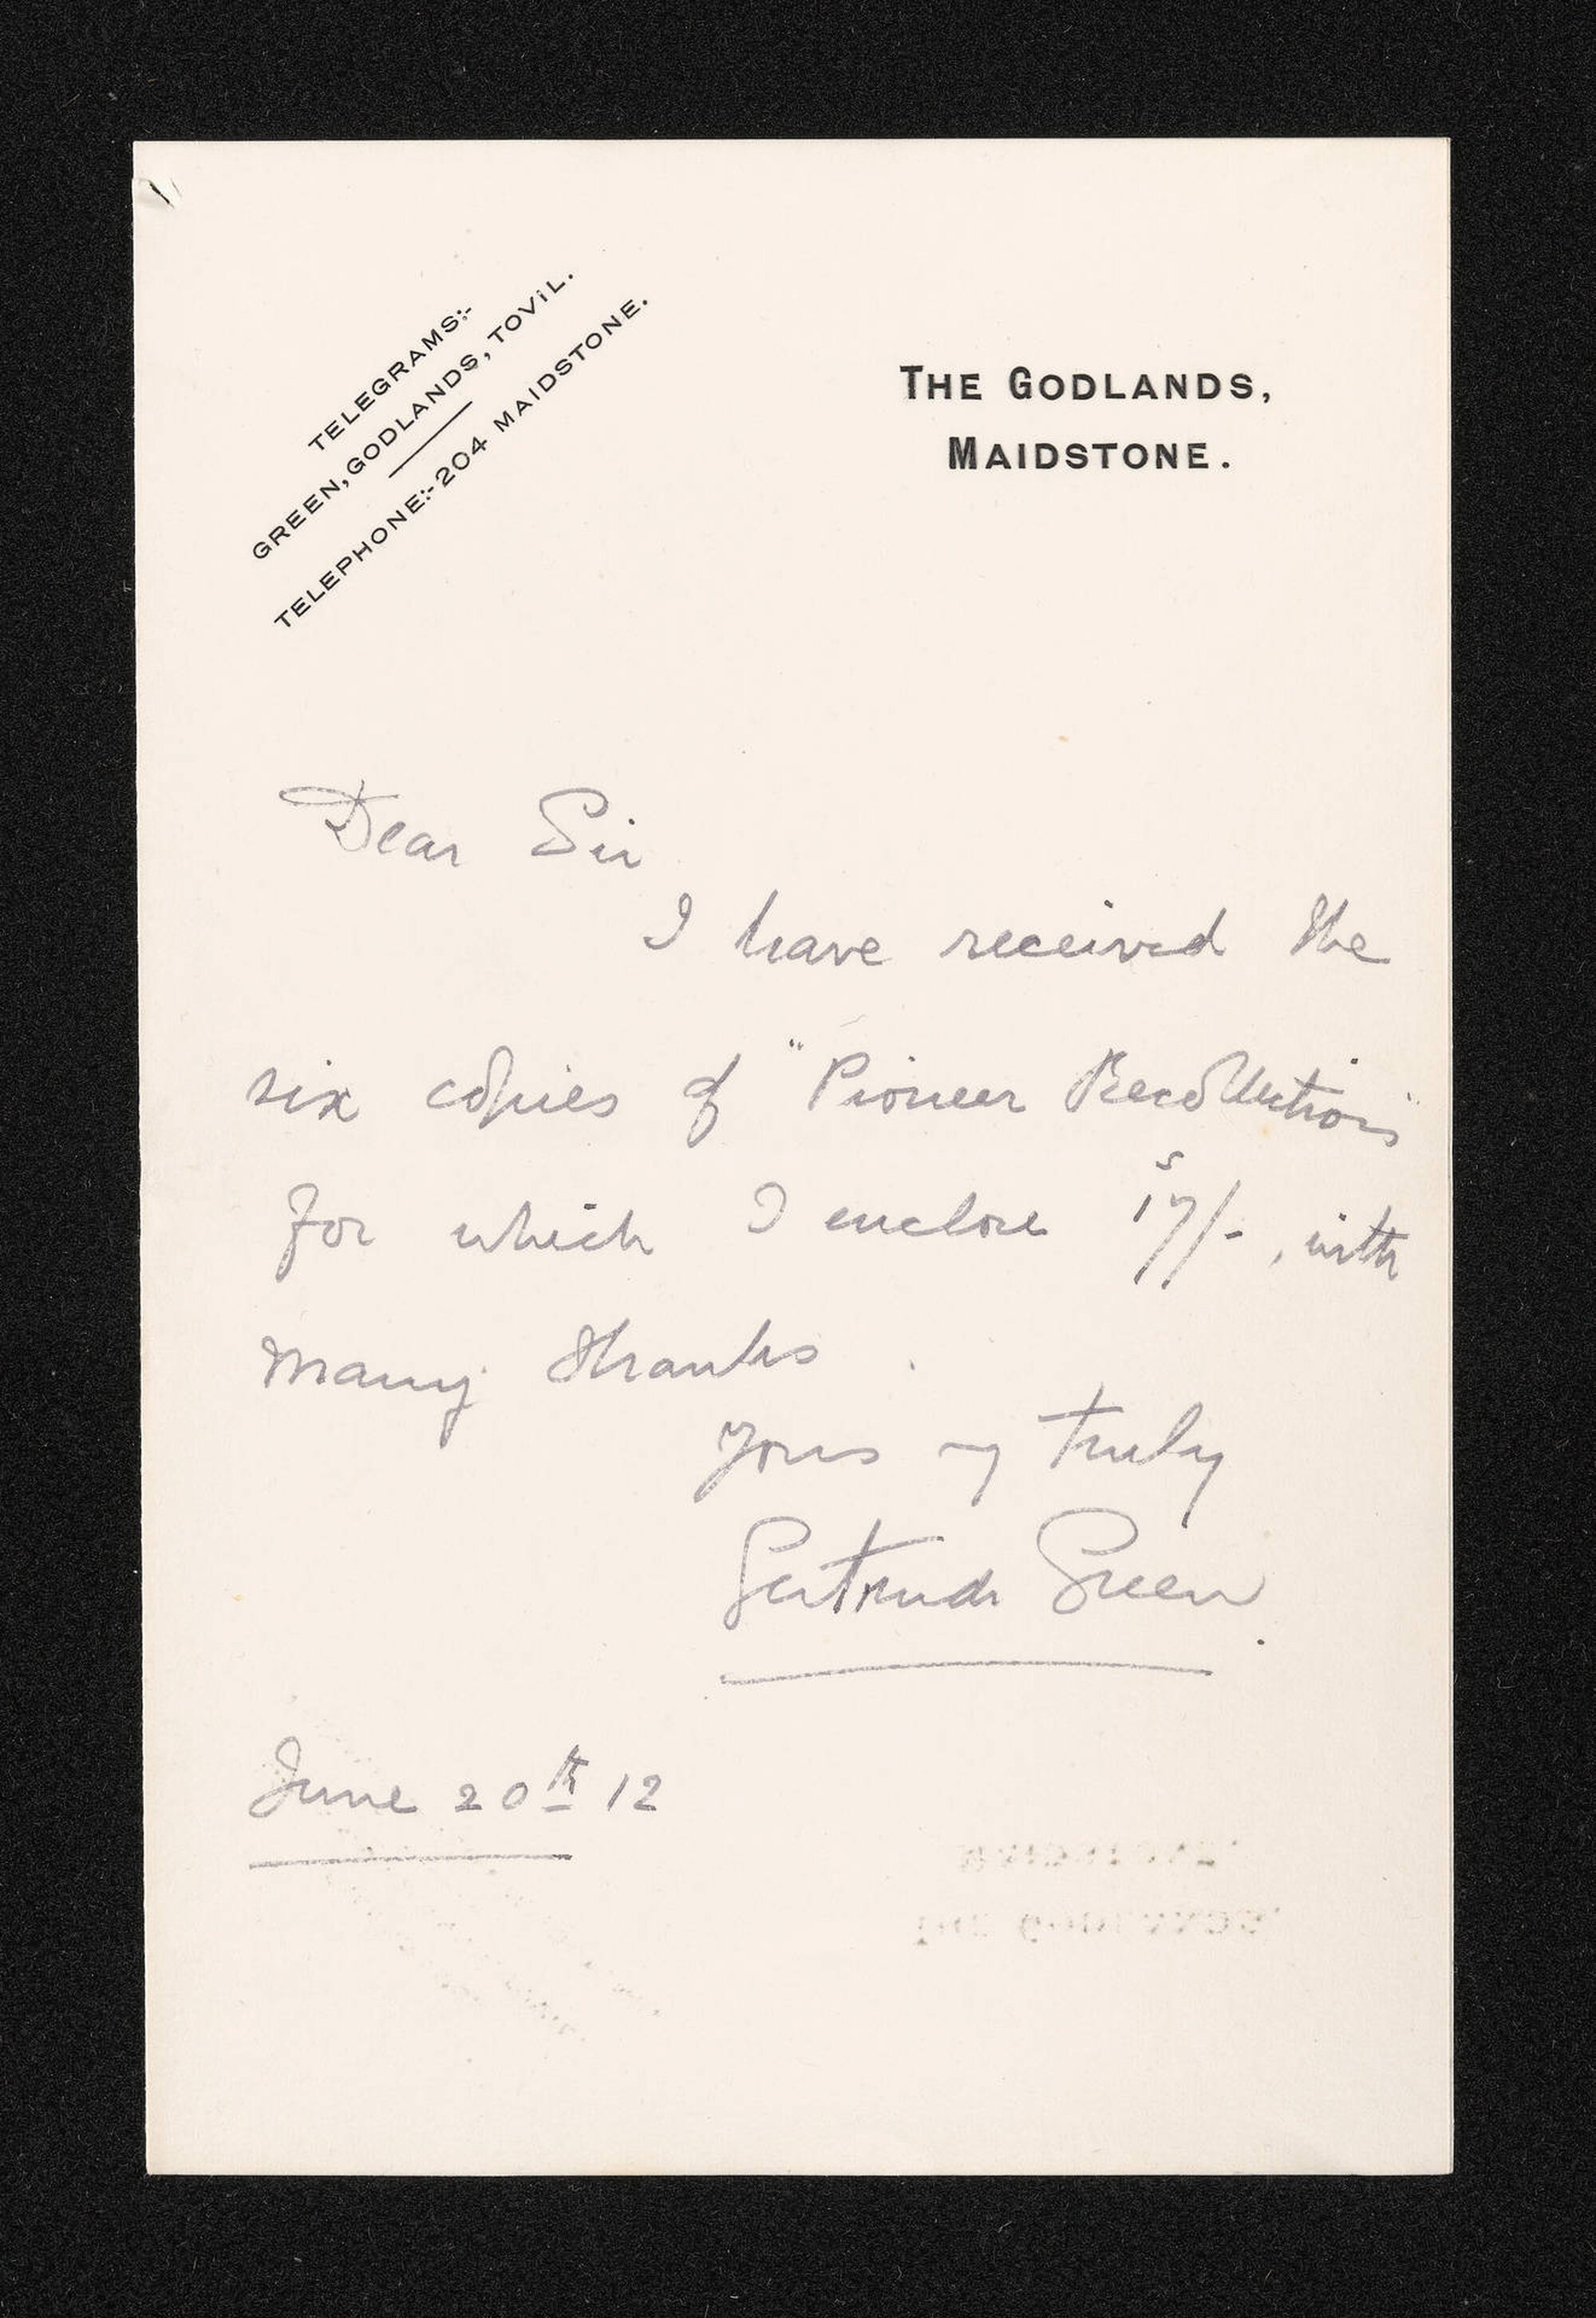 TELEGRAMS:-
GREEN, GODLANDS, TOVIL.
TELEPHONE:-204 MAIDSTONE.
THE GODLANDS,
MAIDSTONE.
Dear Sir
I have received the
six copies of "Pioneer Recollections"
for which I enclose 17/-, with
many thanks.
Yours vy truly
Gertrude Green.
June 20th 12